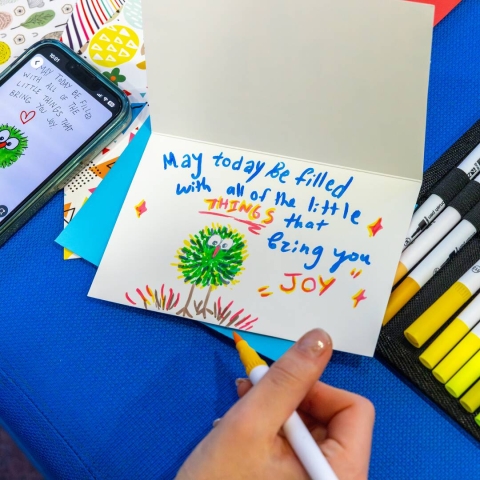 MAY TODAY BE FILLED
WITH ALL OF THE
LITTLE THINGS THAT
BRING YOU JOY
May today Be filled
with all of the little
THINGS that
bring you
JOY